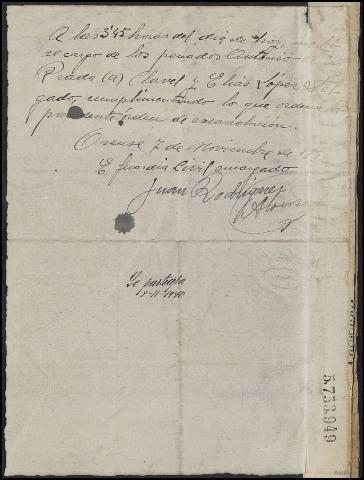 A las 3'45 horas del dia de hoy me
el cargo de los penados Antonio
Prada (a) Clavel y Elias López
gado, cumplimentando lo que ordena la
precedente orden de excarcelación.
Orense 7 de Noviembre de
El Guardia Civil encargado
Juan Rodriguez
Alonso
Se participa
5.753.949